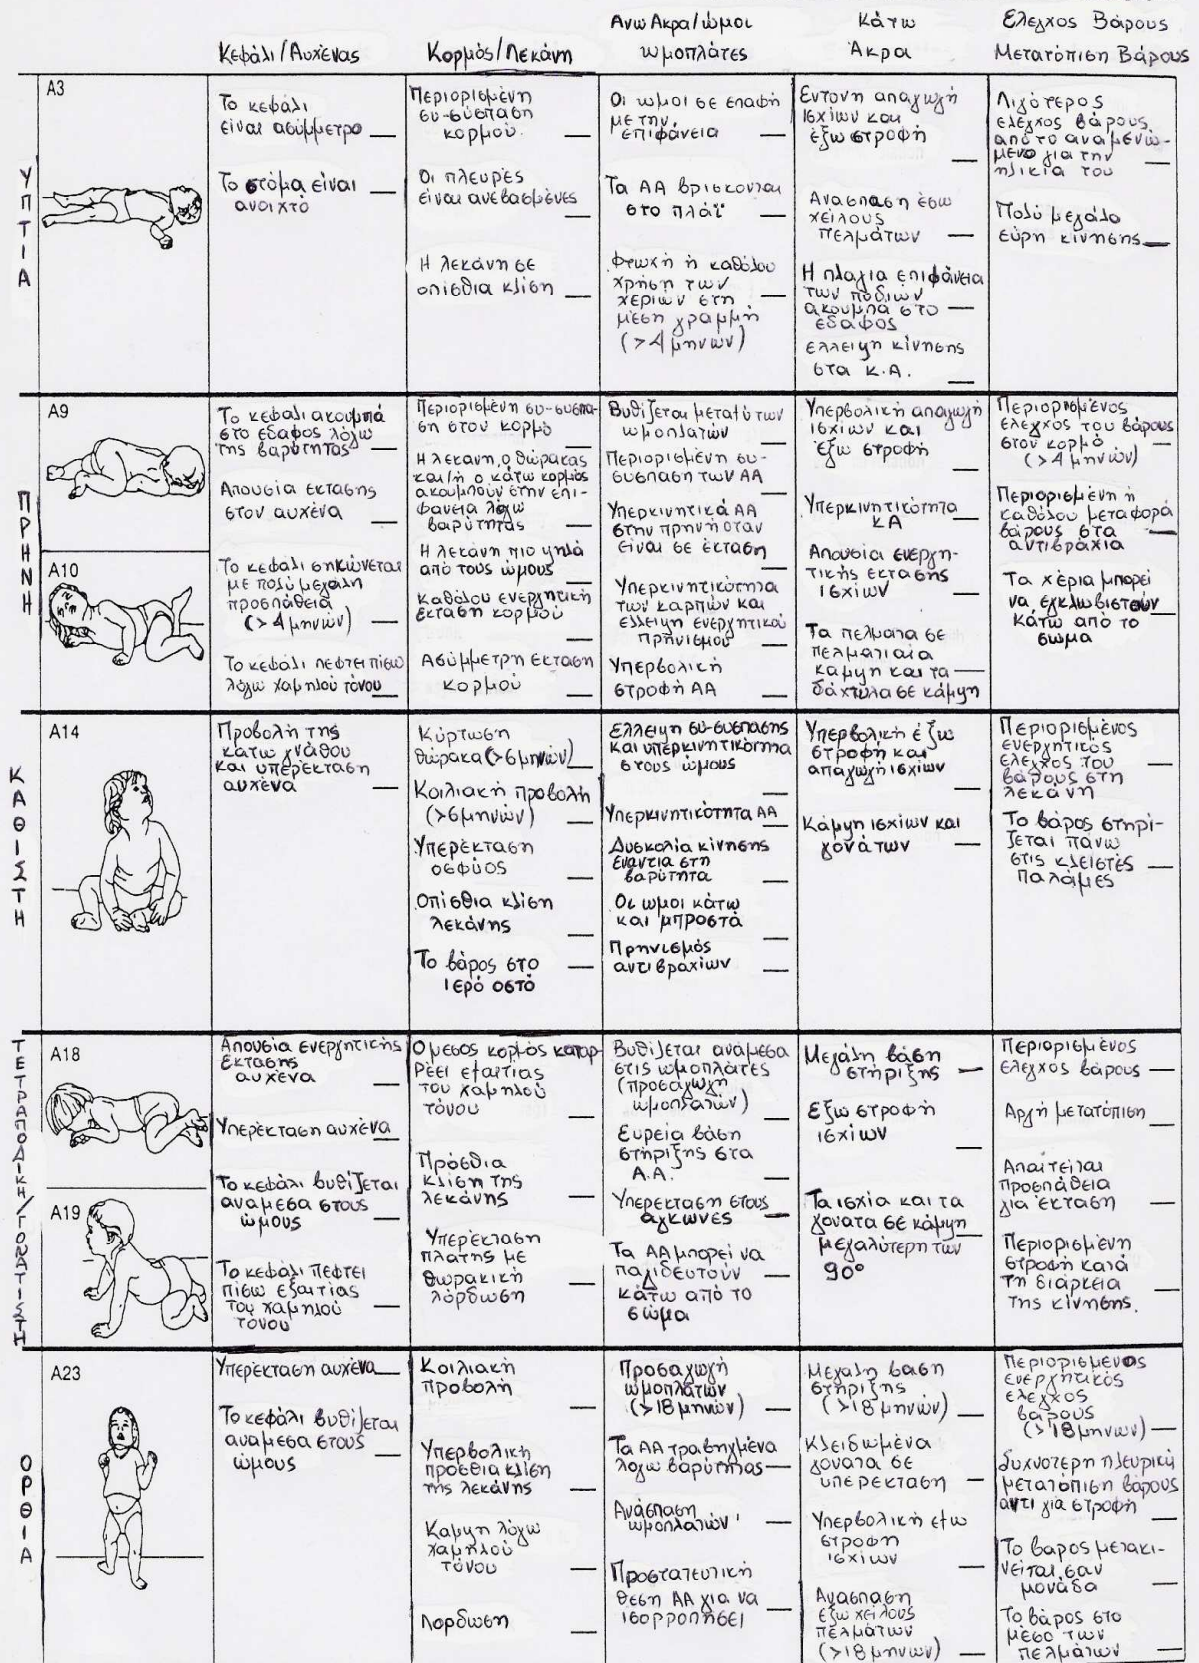 Κεφάλι/Αυχένας
Κορμός/Λεκάνη
Ανω Ακρα/ώμοι
ωμοπλάτες
Κάτω
Άκρα
Ελεγχος Βάρους
Μετατόπιση Βάρους
ΥΠΤΙΑ
A3
Το κεφάλι
είναι ασύμμετρο
Το στόμα είναι
ανοιχτό
Περιορισμένη
συ-σύσπαση
κορμού.
Οι πλευρές
είναι ανεβασμένες
Η λεκάνη σε
οπίσθια κλίση
Οι ωμοι σε επαφή
με την
επιφάνεια
Τα ΑΑ βρισκονται
στο πλάϊ
Φτωχή ή καθόλου
χρήση των
χεριών στη
μέση γραμμή
(>4 μηνών)
Εντονη απαγωγή
ισχίων και
έξω στροφή
Ανασπαση έσω
χείλους
πελμάτων
Η πλαγια επιφάνεια
των ποδιων
ακουμπα στο
έδαφος
ελλειψη κίνησης
στα Κ.Α.
Λιγότερος
ελεγχος βάρους
από το αναμενώ-
μενο για την
ηλικία του
Πολύ μεγάλο
εύρη κίνησης
ΠΡΗΝΗ
A9
A10
Το κεφάλι ακουμπά
στο έδαφος λόγω
της βαρύτητας
Απουσία εκτασης
στον αυχένα
Το κεφάλι σηκώνεται
με πολύ μεγάλη
προσπάθεια
(>4 μηνών)
Το κεφάλι πεφτει πίσω
λόγω χαμηλού τόνου
Περιορισμένη συ-συσπα-
ση στον κορμό
Η λεκανη, ο θώρακας
και/ή ο κάτω κορμός
ακουμπούν στην επι-
φανεια λόγω
βαρύτητας
Η λεκάνη πιο ψηλά
από τους ώμους
Καθόλου ενεργητική
έκταση κορμού
Ασύμμετρη εκταση
κορμού
Βυθίζεται μεταξύ των
ωμοπλατών
Περιορισμένη συ-
συσπαση των ΑΑ
Υπερκινητικά ΑΑ
στην πρηνή οταν
είναι σε έκταση
Υπερκινητικότητα
των καρπών και
έλλειψη ενεργητικού
πρηνισμού
Υπερβολική
στροφή ΑΑ
Υπερβολική απαγωγή
ισχίων και
έξω στροφή
Υπερκινητικότητα
ΚΑ
Απουσία ενεργη-
τικής εκτασης
ισχίων
Τα πελματα σε
πελματιαία
καμψη και τα
δάχτυλα σε κάμψη
Περιορισμένος
έλεγχος του βάρους
στον κορμό
(>4 μηνών)
Περιορισμένη ή
καθόλου μεταφορά
βάρους στα
αντιβράχια
Τα χέρια μπορεί
να εγκλωβιστούν
κάτω από το
σωμα
ΚΑΘΙΣΤΗ
A14
Προβολή της
κάτω γνάθου
και υπερέκταση
αυχένα
Κύρτωση
θώρακα (>6 μηνών)
Κοιλιακή προβολή
(>6μηνών)
Υπερέκταση
οσφύος
Οπίσθια κλίση
λεκάνης
Το βάρος στο
ιερό οστό
Ελλειψη συ-συσπασης
και υπερκινητικότητα
στους ώμους
Υπερκινητικότητα ΑΑ
Δυσκολία κίνησης
ενάντια στη
βαρύτητα
Οι ωμοι κάτω
και μπροστά
Πρηνισμός
αντιβραχίων
Υπερβολική έξω
στροφή και
απαγωγή ισχίων
Κάμψη ισχίων και
γονάτων
Περιορισμένος
ενεργητικός
έλεγχος του
βάρους στη
λεκάνη
Το βάρος στηρί-
ζεται πάνω
στις κλειστές
παλάμες
ΤΕΤΡΑΠΟΔΙΚΗ/ΓΟΝΑΤΙΣΤΗ
A18
A19
Απουσία ενεργητικής
έκτασης
αυχένα
Υπερέκταση αυχένα
Το κεφάλι βυθίζεται
αναμεσα στους
ώμους
Το κεφάλι πέφτει
πίσω εξαιτίας
του χαμηλού
τόνου
Ο μεσος κορμός καταρ-
ρέει εξαιτίας
του χαμηλού
τόνου
Πρόσθια
κλίση της
λεκάνης
Υπερέκταση
πλάτης με
θωρακική
λόρδωση
Βυθίζεται ανάμεσα
στις ωμοπλάτες
(προσαγωγή
ωμοπλατών)
Ευρεία βάση
στήριξης στα
Α.Α.
Υπερεκταση στους
αγκωνες
Τα ΑΑ μπορεί να
παγιδευτούν
κάτω από το
σώμα
Μεγάλη βάση
στήριξης
Εξω στροφή
ισχίων
Τα ισχία και τα
γονατα σε κάμψη
μεγαλύτερη των
90°
Περιορισμένος
έλεγχος βάρους
Αργή μετατόπιση
Απαιτείται
προσπάθεια
για έκταση
Περιορισμένη
στροφή κατά
τη διάρκεια
της κίνησης.
ΟΡΘΙΑ
A23
Υπερέκταση αυχένα
Το κεφάλι βυθίζεται
αναμεσα στους
ώμους
Κοιλιακή
προβολή
Υπερβολική
προσθια κλίση
της λεκάνης
Καμψη λόγω
χαμηλού
τόνου
Λορδωση
Προσαγωγή
ωμοπλάτων
(>18 μηνών)
Τα ΑΑ τραβηγμένα
λογω βαρύτητας
Ανάσπαση
ωμοπλατών
Προστατευτική
θεση ΑΑ για να
ισορροπήσει
Μεγαλη βαση
στήριξης
(>18 μηνών)
Κλειδωμένα
γονατα σε
υπερεκταση
Υπερβολική εξω
στροφη
ισχίων
Ανασπαση
έξω χείλους
πελμάτων
(>18 μηνών)
Περιορισμενος
ενεργητικός
έλεγχος
βαρους
(>18μηνων)
Συχνοτερη πλευρική
μετατόπιση βάρους
αντι για στροφή
Το βαρος μετακι-
νείται σαν
μονάδα
Το βάρος στο
μέσο των
πελμάτων